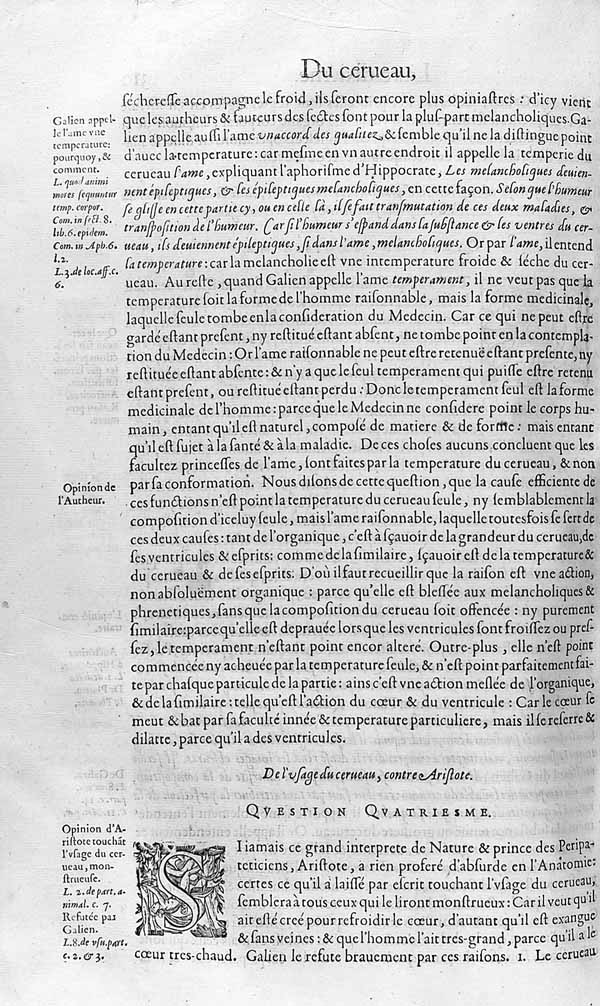 Du cerueau,
ſéchereſſe accompagne le froid, ils ſeront encore plus opiniaſtres : d'icy vient
que les autheurs & fauteurs des ſectes ſont pour la pluſ-part melancholiques. Ga-
lien appelle auſſi l'ame vn accord des qualitez, & ſemble qu'il ne la diſtingue point
d'auec la temperature : car meſme en vn autre endroit il appelle la temperie du
cerueau l'ame, expliquant l'aphoriſme d'Hippocrate, Les melancholiques deuien-
nent épileptiques, & les épileptiques melancholiques, en cette façon. Selon que l'humeur
ſe gliſſe en cette partie cy, ou en celle là, il ſe faut tranſmutation de ces deux maladies, &
tranſpoſition de l'humeur. Car ſi l'humeur s'eſpand dans la ſubſtance & les ventres du cer-
ueau, ils deuiennent épileptiques, ſi dans l'ame, melancholiques. Or par l'ame, il entend
la temperature : car la melancholie eſt vne intemperature froide & ſéche du cer-
ueau. Au reſte, quand Galien appelle l'ame temperament, il ne veut pas que la
temperature ſoit la forme de l'homme raiſonnable, mais la forme medicinale,
laquelle ſeule tombe en la conſideration du Medecin. Car ce qui ne peut eſtre
gardé eſtant preſent, ny reſtitué eſtant abſent, ne tombe point en la contempla-
tion du Medecin : Or l'ame raiſonnable ne peut eſtre retenuë eſtant preſente, ny
reſtituée eſtant abſente : & n'y a que le ſeul temperament qui puiſſe eſtre retenu
eſtant preſent, ou reſtitué eſtant perdu : Donc le temperament ſeul eſt la forme
medicinale de l'homme : parce que le Medecin ne conſidere point le corps hu-
main, entant qu'il eſt naturel, compoſé de matiere & de forme : mais entant
qu'il eſt ſujet à la ſanté & à la maladie. De ces choſes aucuns concluent que les
facultez princeſſes de l'ame, ſont faites par la temperature du cerueau, & non
par ſa conformation. Nous diſons de cette queſtion, que la cauſe efficiente de
ces functions n'eſt point la temperature du cerueau ſeule, ny ſemblablement la
compoſition d'iceluy ſeule, mais l'ame raiſonnable, laquelle toutesfois ſe ſert de
ces deux cauſes : tant de l'organique, c'eſt à ſçauoir de la grandeur du cerueau, de
ſes ventricules & eſprits : comme de la ſimilaire, ſçauoir eſt de la temperature &
du cerueau & de ſes eſprits. D'où il faut recueillir que la raiſon eſt vne action,
non abſoluëment organique : parce qu'elle eſt bleſſée aux melancholiques &
phrenetiques, ſans que la compoſition du cerueau ſoit offencée : ny purement
ſimilaire : parce qu'elle eſt deprauée lors que les ventricules ſont froiſſez ou preſ-
ſez, le temperament n'eſtant point encor alteré. Outre-plus, elle n'eſt point
commencée ny acheuée par la temperature ſeule, & n'eſt point parfaitement fai-
te par chaſque particule de la partie : ains c'eſt vne action meſlée de l'organique,
& de la ſimilaire : telle qu'eſt l'action du cœur & du ventricule : Car le cœur ſe
meut & bat par ſa faculté innée & temperature particuliere, mais il ſe reſerre &
dilatte, parce qu'il a des ventricules.
Galien appel-
le l'ame vne
temperature:
pourquoy, &
comment.
L. quod animi
mores ſequuntur
temp. corpor.
Com. in ſect. 8.
lib. 6. epidem.
Com. in Aph. 6.
l. 2.
L. 3. de loc. aff. c.
6.
Opinion de
l'Autheur.
De l'vſage du cerueau, contre Ariſtote.
QVESTION QVATRIESME.
SI iamais ce grand interprete de Nature & prince des Peripa-
teticiens, Ariſtote, a rien proferé d'abſurde en l'Anatomie:
certes ce qu'il a laiſſé par eſcrit touchant l'vſage du cerueau,
ſemblera à tous ceux qui le liront monſtrueux : Car il veut qu'il
ait eſté creé pour refroidir le cœur, d'autant qu'il eſt exangue
& ſans veines : & que l'homme l'ait tres-grand, parce qu'il a le
cœur tres-chaud. Galien le refute brauement par ces raiſons. 1. Le cerueau
Opinion d'A-
riſtote touchãt
l'vſage du cer-
ueau, mon-
ſtrueuſe.
L. 2. de part. a-
nimal. c. 7.
Refutée par
Galien.
L. 8. de vſu part.
c. 2. & 3.